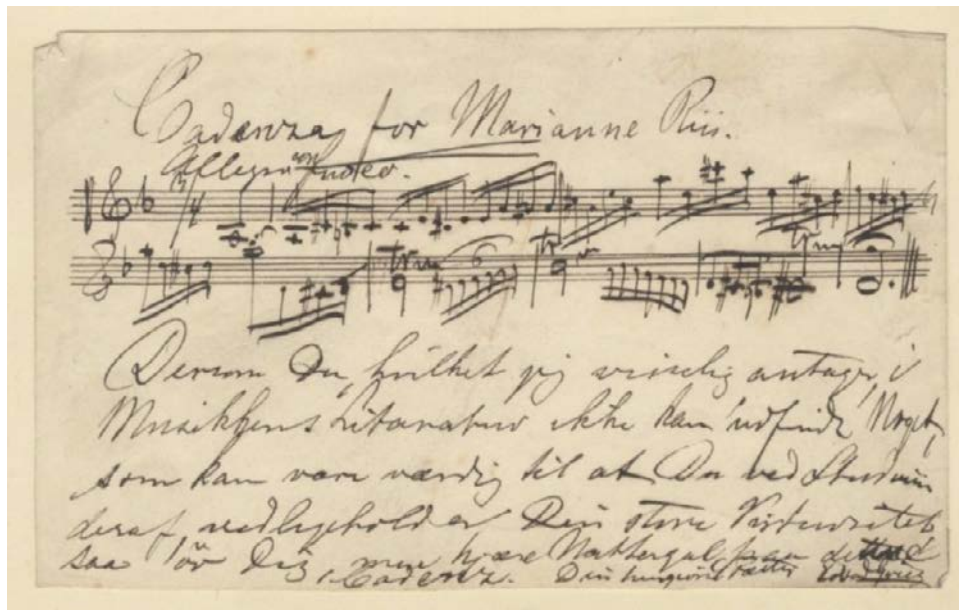 Cadenza for Marianne Riis.
Allegro con fuoco.
3/4
Dersom Du, hvilket jeg rimelig antager, i
Musikkens Literatur ikke kan udfinde Noget,
som kan være værdig til at Du ved Studium
deraf vedligeholder Din store Virtuositet
saa lær Dig, min kjære Nattergal,
Cadenz. Din Fætter Edvard Grieg